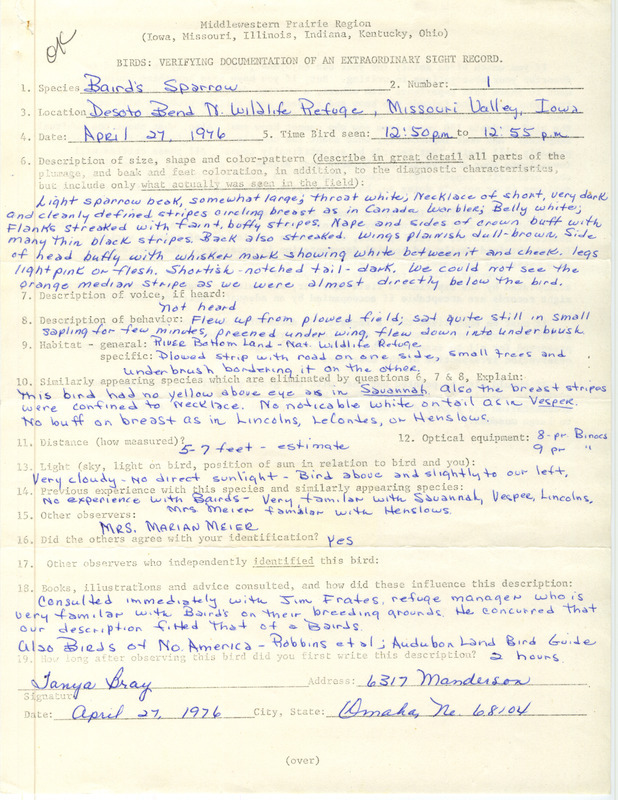 Middlewestern Prairie Region
(Iowa, Missouri, Illinois, Indiana, Kentucky, Ohio)
OK
BIRDS: VERIFYING DOCUMENTATION OF AN EXTRAORDINARY SIGHT RECORD.
1. Species Baird's Sparrow 2. Number: 1
3. Location Desoto Bend N. Wildlife Refuge, Missouri Valley, Iowa
4. Date: April 27, 1976 5. Time Bird seen: 12:50pm to 12:55 p.m
6. Description of size, shape and color-pattern (describe in great detail all parts of the
plumage, and beak and feet coloration, in addition, to the diagnostic characteristics,
but include only what actually was seen in the field):
Light sparrow beak, somewhat large; throat white; Necklace of short, very dark
and cleanly defined stripes circling breast as in Canada Warbler; Belly white;
Flanks streaked with faint, buffy stripes. Nape and sides of crown buff with
many thin black stripes. Back also streaked. Wings plainish dull-brown. Side
of head buffy with whisker mark showing white between it and cheek. legs
light pink or flesh. Shortish-notched tail-dark. We could not see the
orange median stripe as we were almost directly below the bird.
7. Description of voice, if heard:
Not heard
8. Description of behavior: Flew up from plowed field; sat quite still in small
sapling for few minutes, preened under wing, flew down into underbrush
9. Habitat - general: River Bottom Land - Nat. Wildlife Refuge
specific: Plowed strip with road on one side, small trees and
underbrush bordering it on the other.
10. Similarly appearing species which are eliminated by questions 6, 7 & 8, Explain:
This bird had no yellow above eye as in Savannah. Also the breast stripes
were confined to necklace. No noticable white on tail as in Vesper.
No buff on breast as in Lincolns, LeContes, or Henslows.
11. Distance (how measured)? 5-7 feet - estimate 12. Optical equipment: 8-pr Binocs
9 pr "
13. Light (sky, light on bird, position of sun in relation to bird and you):
Very cloudy - No direct sunlight - Bird above and slightly to our left,
14. Previous experience with this species and similarly appearing species:
No experience with Bairds - Very familar with Savannah, Vesper, Lincolns,
Mrs Meier familar with Henslows.
15. Other observers:
Mrs. Marian Meier
16. Did the others agree with your identification? Yes
17. Other observers who independently identified this bird:
18. Books, illustrations and advice consulted, and how did these influence this description:
Consulted immediately with Jim Frates, refuge manager who is
very familar with Bairds on their breeding grounds. He concurred that
our description fitted that of a Bairds.
Also Birds of No. America - Robbins et al; Audubon Land Bird Guide
19. How long after observing this bird did you first write this description? 2 hours.
Tanya Bray Address: 6317 Manderson
Signature
Date: April 27, 1976 City, State: Omaha, Ne. 68104
(over)